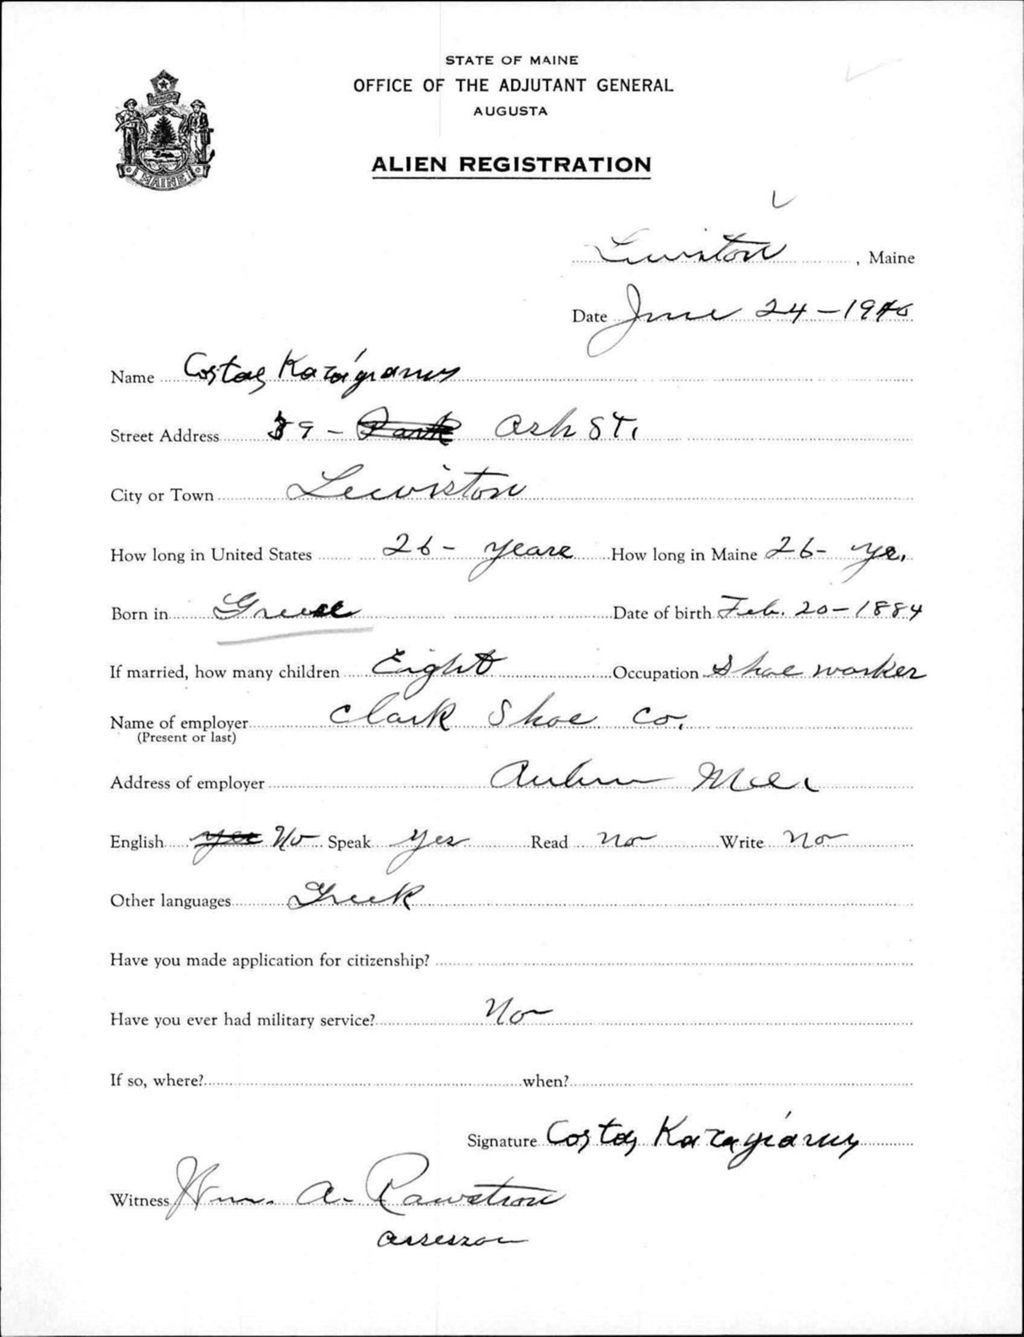 STATE OF MAINE
OFFICE OF THE ADJUTANT GENERAL
AUGUSTA
ALIEN REGISTRATION
MAINE
Lewiston, Maine
Date June 24-1940
Name Costas
Street Address 9 - Ash St.
City or Town Lewiston
How long in United States 26 - years How long in Maine 26 - yr.
Born in Greece Date of birth Feb. 20-1884
If married, how many children Eight Occupation Shoe worker
Name of employer Clark Shoe Co.
(Present or last)
Address of employer Auburn Me.
English No Speak Yes Read No Write No
Other languages Greek
Have you made application for citizenship?
Have you ever had military service? No
If so, where? when?
Signature Costas
Witness Wm. A. Rawstron
Assessor